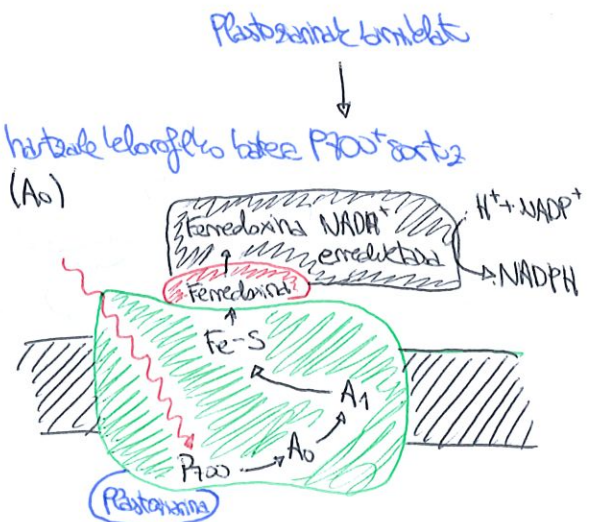 Plastozianinak
↓
hartzaile klorofilko batera P700⁺ sortuz
(A₀)
Ferredoxina NADH⁺
erreduktasa
H⁺ + NADP⁺
NADPH
Ferredoxina
Fe-S
A₁
A₀
P700
Plastozianina